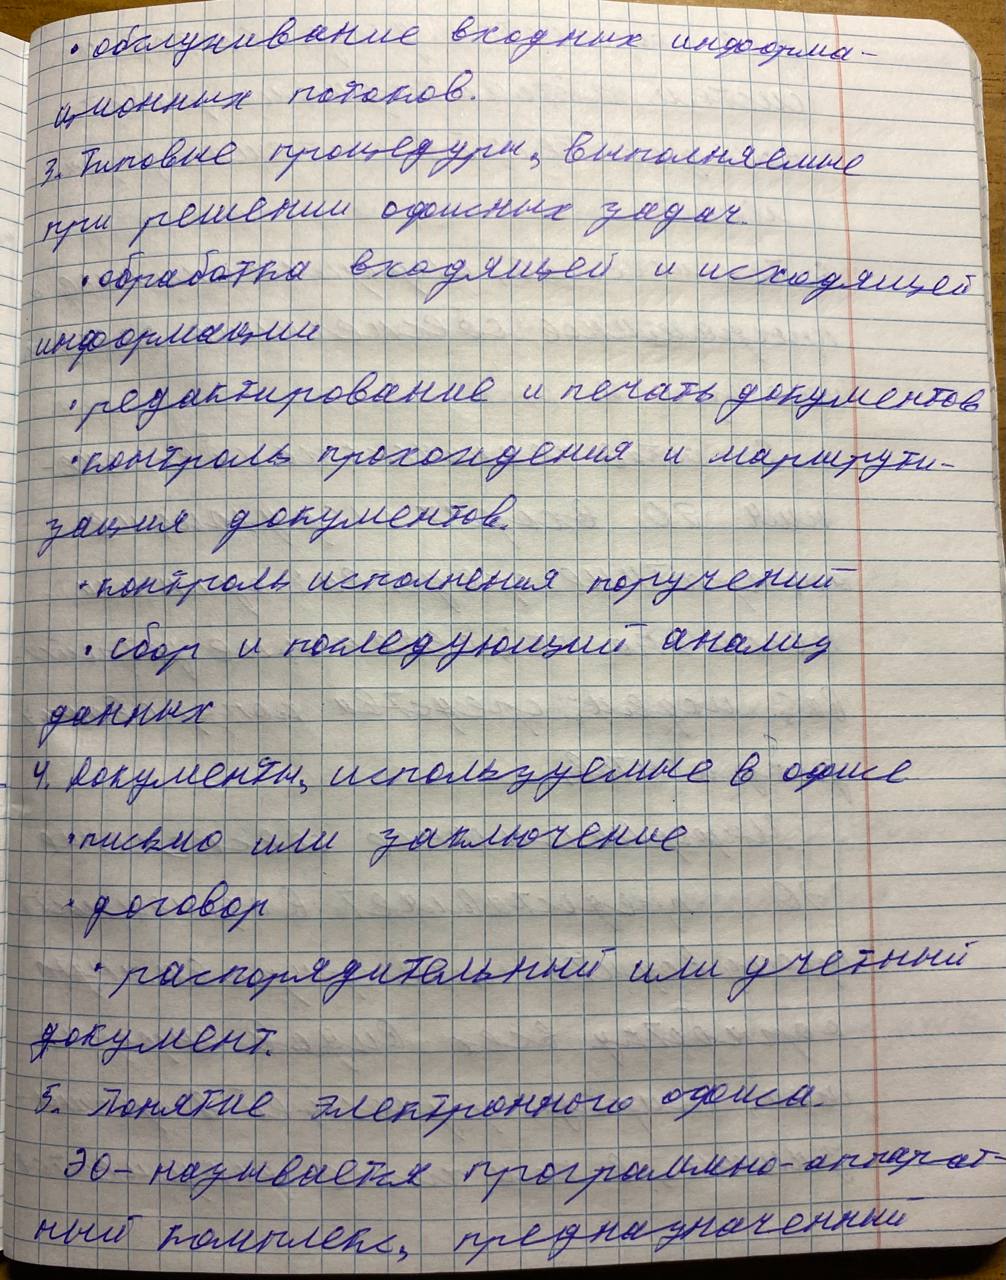 • обслуживание входных информа-
ционных потоков.
3. Типовые процедуры, выполняемые
при решении офисных задач.
• обработка входящей и исходящей
информации
• редактирование и печать документов
• контроль прохождения и маршрути-
зация документов.
• контроль исполнения поручений
• сбор и последующий анализ
данных
4. Документы, используемые в офисе
• письмо или заключение
• договор
• распорядительный или учетный
документ.
5. Понятие электронного офиса.
ЭО - называется программно-аппарат-
ный комплекс, предназначенный